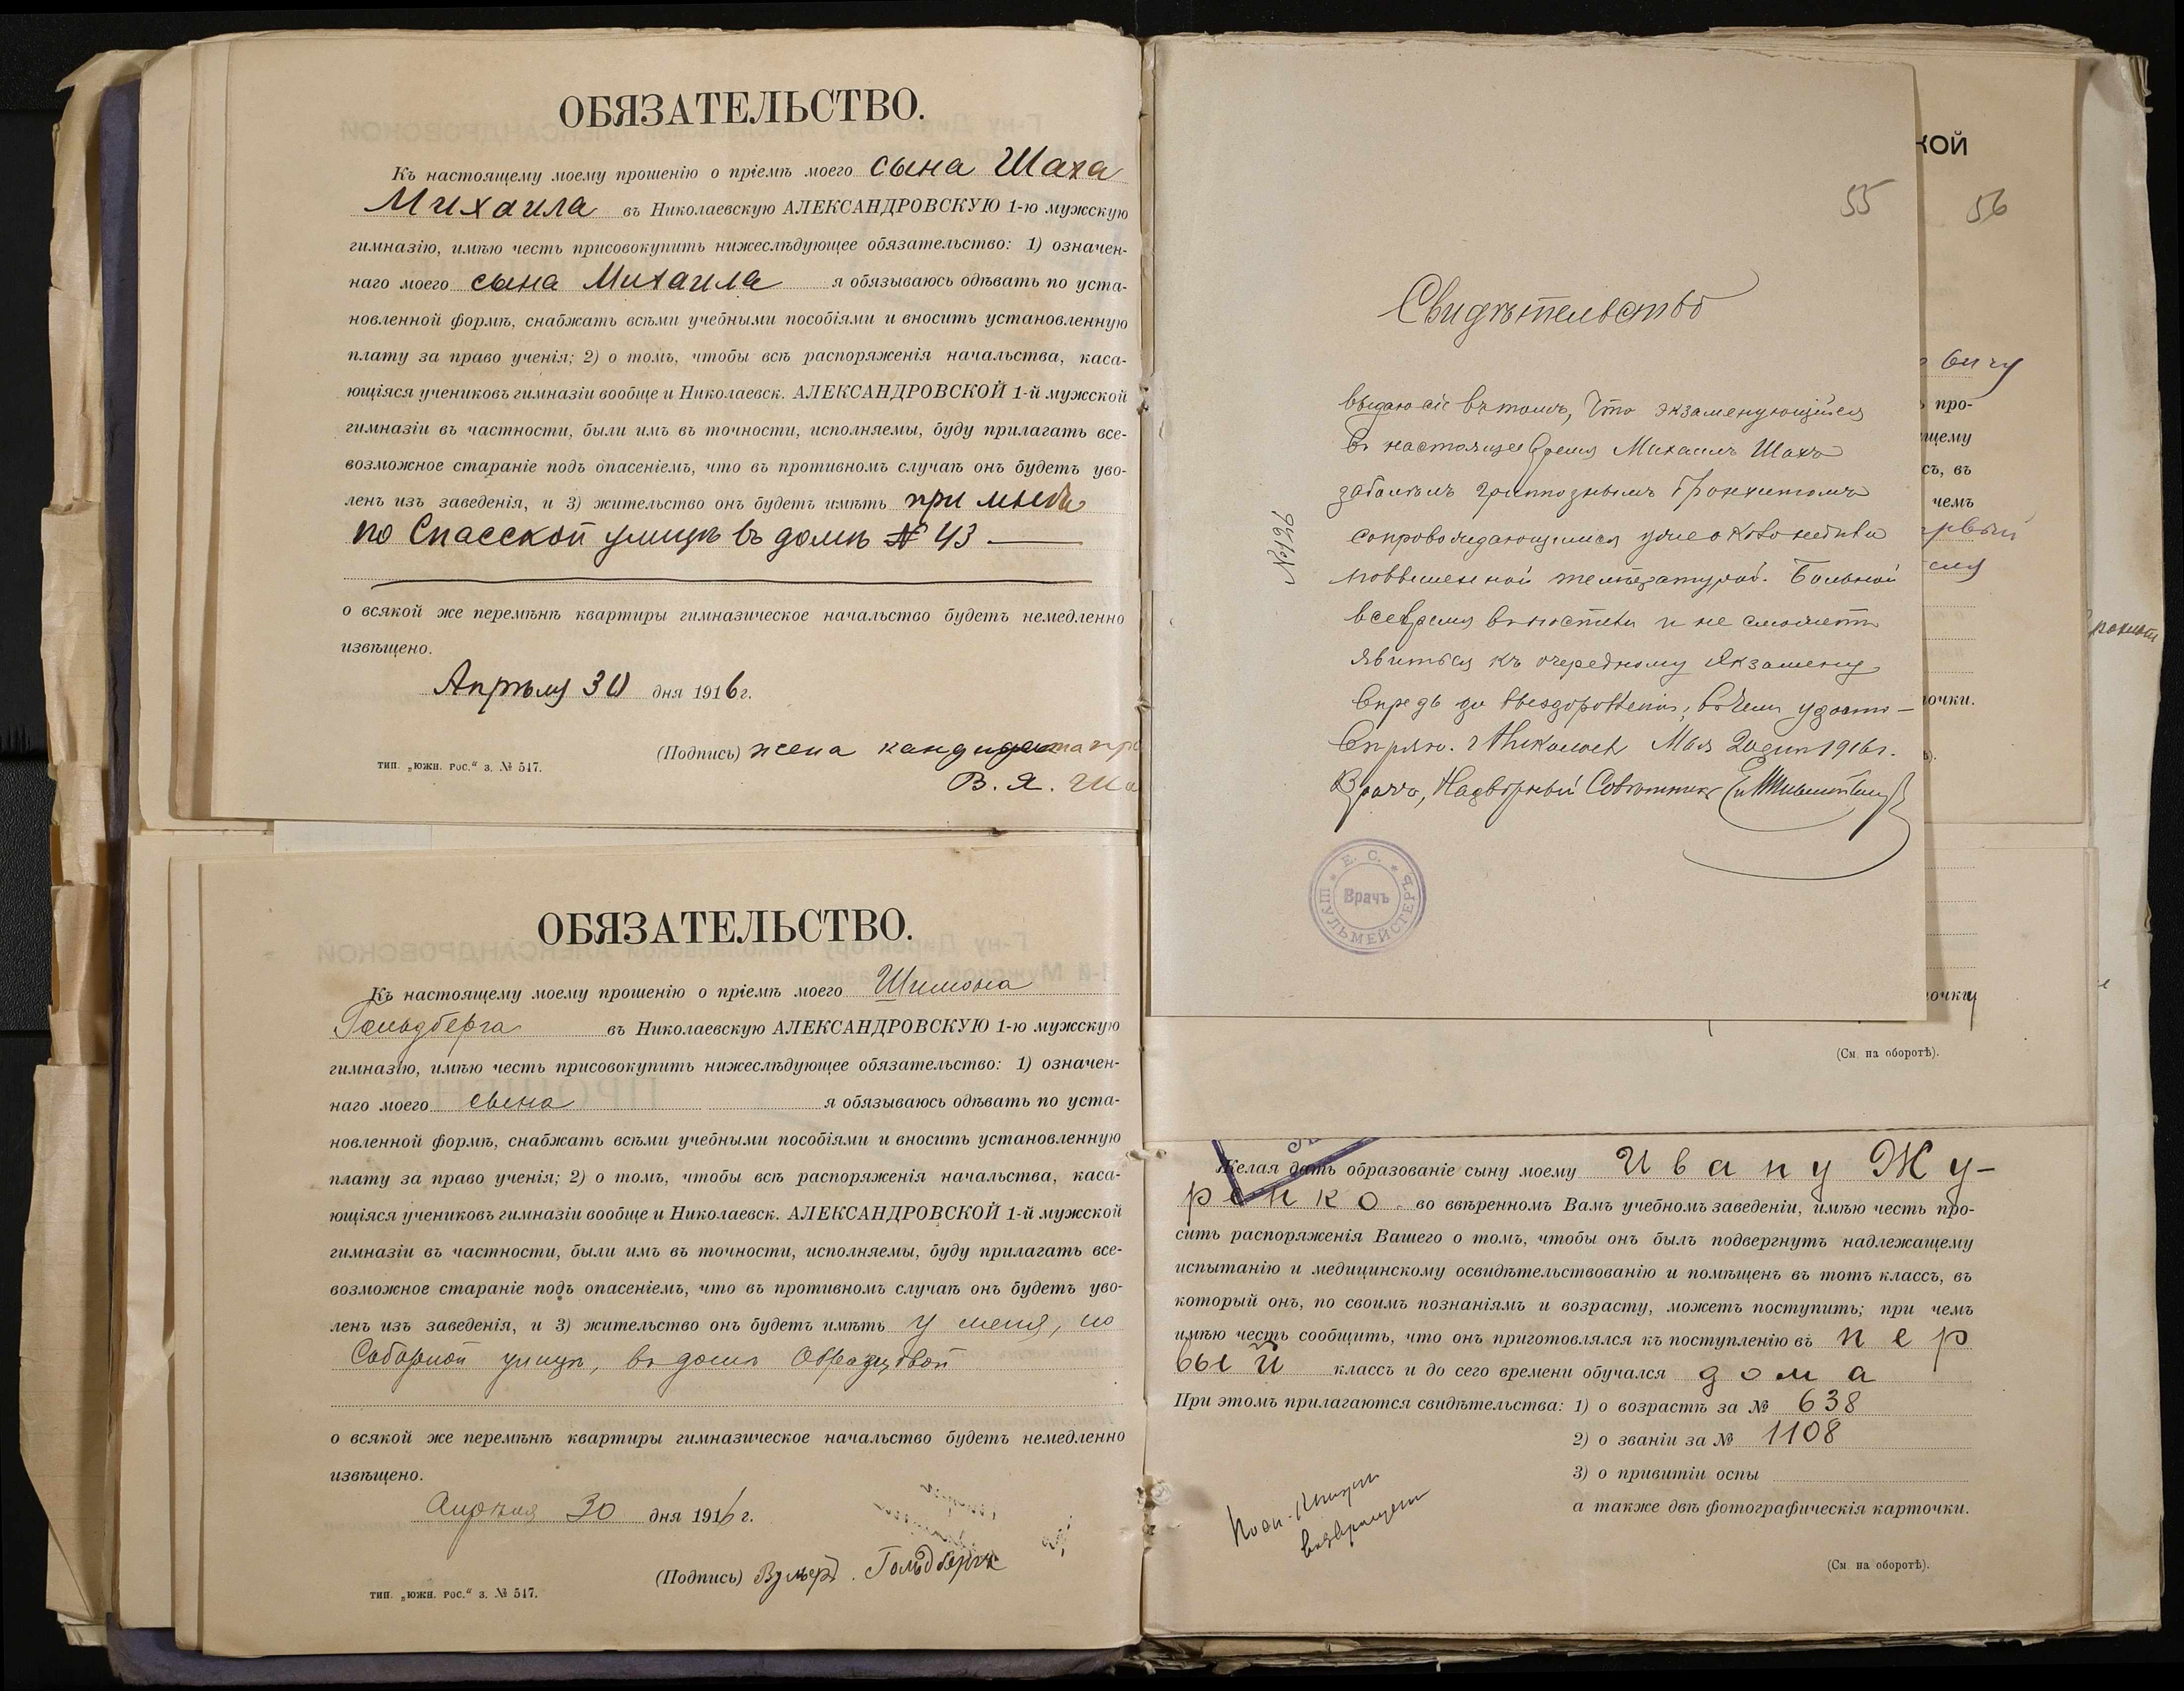 ОБЯЗАТЕЛЬСТВО.
Къ настоящему моему прошенію о пріемѣ моего сына Шаха
Михаила въ Николаевскую АЛЕКСАНДРОВСКУЮ 1-ю мужскую
гимназію, имѣю честь присовокупить нижеслѣдующее обязательство: 1) означен-
наго моего сына Михаила я обязываюсь одѣвать по уста-
новленной формѣ, снабжать всѣми учебными пособіями и вносить установленную
плату за право ученія; 2) о томъ, чтобы всѣ распоряженія начальства, каса-
ющіяся учениковъ гимназіи вообще и Николаевск. АЛЕКСАНДРОВСКОЙ 1-й мужской
гимназіи въ частности, были имъ въ точности, исполняемы, буду прилагать все-
возможное стараніе подъ опасеніемъ, что въ противномъ случаѣ онъ будетъ уво-
ленъ изъ заведенія, и 3) жительство онъ будетъ имѣть при мнѣ
по Спасской улицѣ въ домѣ № 43
о всякой же перемѣнѣ квартиры гимназическое начальство будетъ немедленно
извѣщено.
Апрѣля 30 дня 1916 г.
(Подпись) жена кандидата пр
В. Я. Ша
тип. „южн. рос.“ з. № 517.
ОБЯЗАТЕЛЬСТВО.
Къ настоящему моему прошенію о пріемѣ моего Шимона
Гольдберга въ Николаевскую АЛЕКСАНДРОВСКУЮ 1-ю мужскую
гимназію, имѣю честь присовокупить нижеслѣдующее обязательство: 1) означен-
наго моего сына я обязываюсь одѣвать по уста-
новленной формѣ, снабжать всѣми учебными пособіями и вносить установленную
плату за право ученія; 2) о томъ, чтобы всѣ распоряженія начальства, каса-
ющіяся учениковъ гимназіи вообще и Николаевск. АЛЕКСАНДРОВСКОЙ 1-й мужской
гимназіи въ частности, были имъ въ точности, исполняемы, буду прилагать все-
возможное стараніе подъ опасеніемъ, что въ противномъ случаѣ онъ будетъ уво-
ленъ изъ заведенія, и 3) жительство онъ будетъ имѣть у меня, по
Соборной улицѣ, въ домѣ Образцовой
о всякой же перемѣнѣ квартиры гимназическое начальство будетъ немедленно
извѣщено.
Апрѣля 30 дня 1916 г.
(Подпись) Гольдбергъ
тип. „южн. рос.“ з. № 517.
55
Свидѣтельство
выдаю сіе въ томъ, что экзаменующійся
въ настоящее время Михаилъ Шахъ
заболѣлъ гриппознымъ бронхитомъ
сопровождающимся
повышенной температурой. Больной
все время въ постели и не сможетъ
явиться къ очередному экзамену
впредь до выздоровленія; въ чемъ удосто-
вѣряю. г. Николаевъ Мая 2 дня 1916 г.
Врачъ, Надворный Совѣтникъ
Е. С. ШУЛЬМЕЙСТЕРЪ
Врачъ
КОЙ
56
вичу
про-
щему
съ, въ
чемъ
рвый
очки.
очки
(См. на оборотѣ).
Желая дать образованіе сыну моему Ивану Жу-
ренко во ввѣренномъ Вамъ учебномъ заведеніи, имѣю честь про-
сить распоряженія Вашего о томъ, чтобы онъ былъ подвергнутъ надлежащему
испытанію и медицинскому освидѣтельствованію и помѣщенъ въ тотъ классъ, въ
который онъ, по своимъ познаніямъ и возрасту, можетъ поступить; при чемъ
имѣю честь сообщить, что онъ приготовлялся къ поступленію въ пер
вый классъ и до сего времени обучался дома
При этомъ прилагаются свидѣтельства: 1) о возрастѣ за № 638
2) о званіи за № 1108
3) о привитіи оспы
а также двѣ фотографическія карточки.
(См. на оборотѣ).